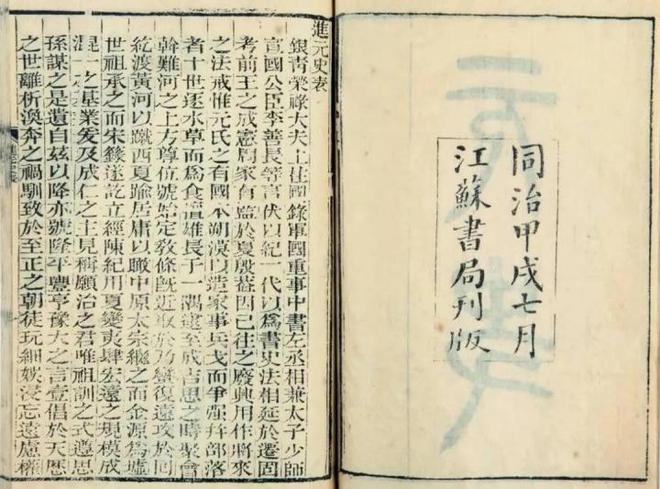 同治甲戌七月
江蘇書局刊版
進元史表
銀青榮祿大夫上柱國錄軍國重事中書左丞相兼太子少師
宣國公臣李善長等言伏以紀一代以爲書史法相延於遷固
考前王之成憲周家有監於夏殷蓋因已往之廢興用作將來
之法戒惟元氏之有國本朔漠以造家事兵戈而爭強幷部落
者十世逐水草而爲食擅雄長于一隅逮至成吉思之時聚會
斡難河之上方尊位號始定敎條旣近取於乃蠻復遠攻於回
紇渡黃河以蹴西夏踰居庸以瞰中原太宗繼之而金源爲墟
世祖承之而宋籙遂訖立經陳紀用夏變夷肆宏遠之規模成
混一之基業爰及成仁之主見稱願治之君唯祖訓之式遵思
孫謀之是遺自茲以降亦號隆平豐亨豫大之言壹倡於天歷
之世離析渙奔之禍馴致於至正之朝徒玩細娛浸忘遠慮權